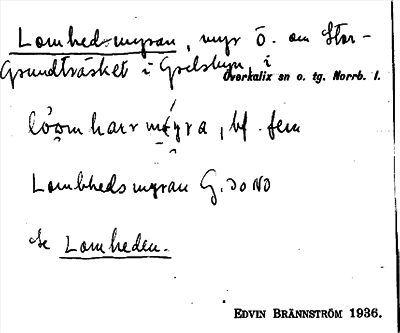 Lomhedsmyran, myr ö. om Stor-
Grundträsket i Grelsbyn, i
Överkalix sn o. tg. Norrb. l.
bf. fem
Lombhedsmyran G. 30 NO
se Lomheden.
EDVIN BRÄNNSTRÖM 1936.